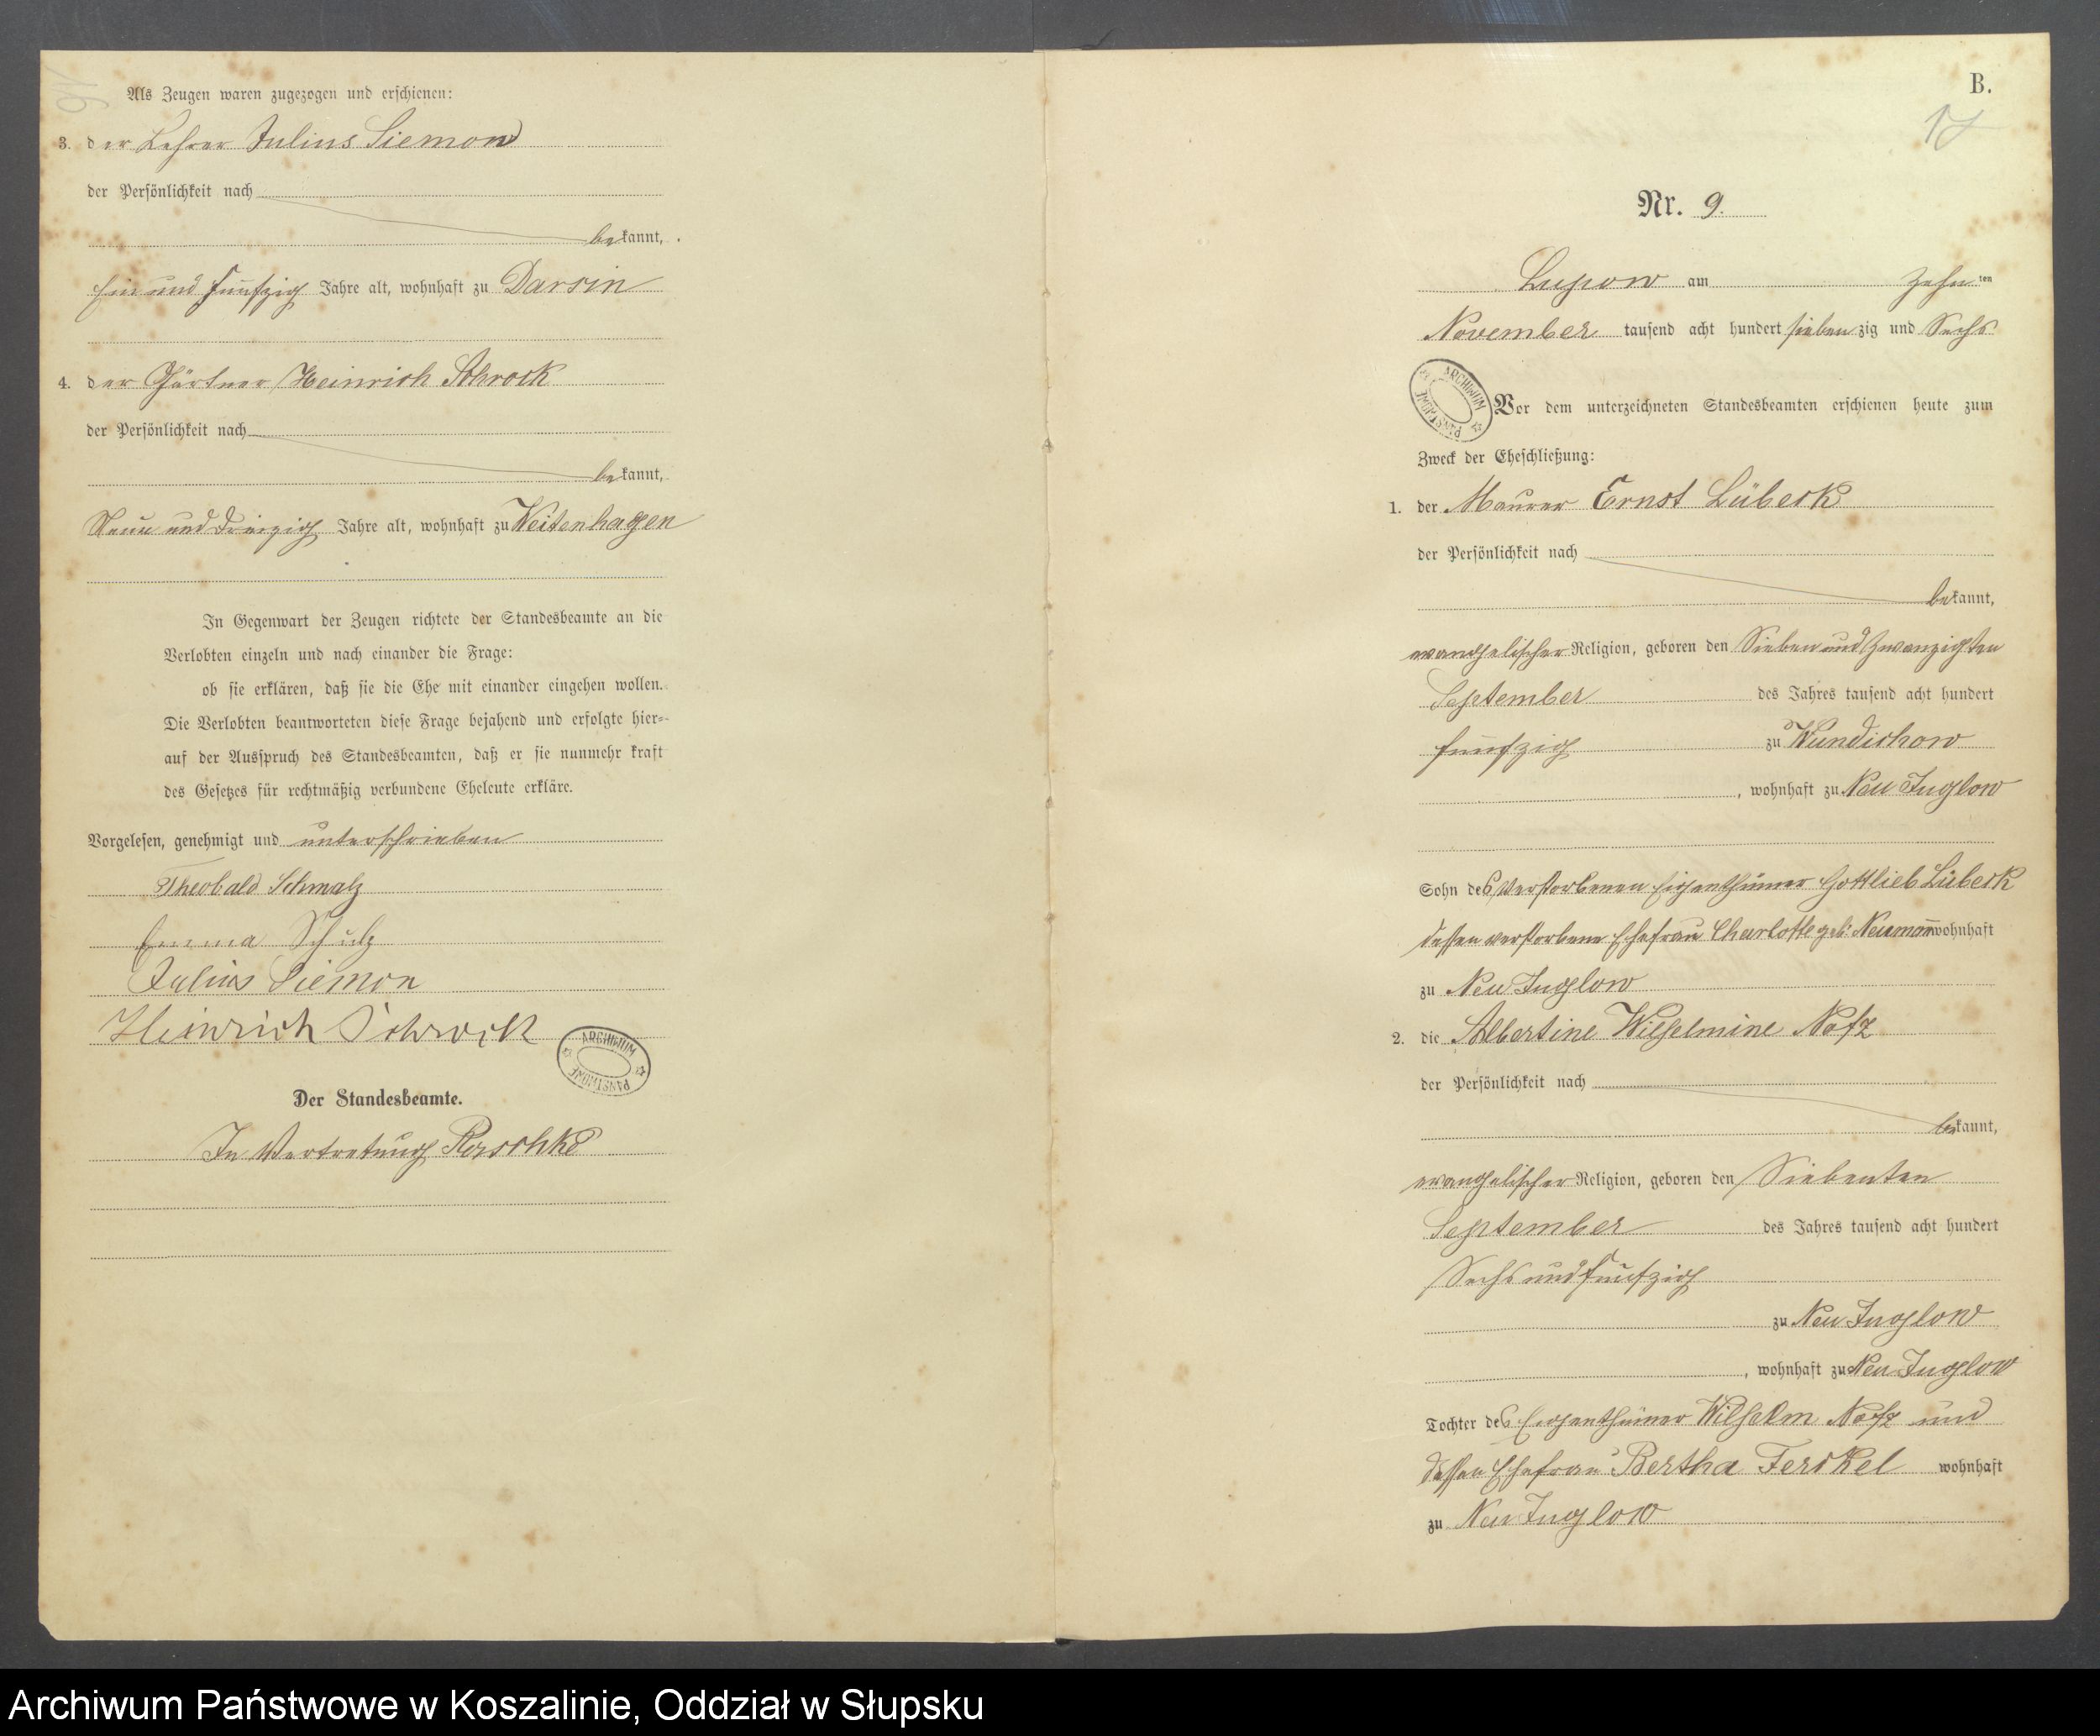 Als Zeugen waren zugezogen und erschienen:
3. der Lehrer Julius Siemon
der Persönlichkeit nach
bekannt,
Ein und Fünfzig Jahre alt, wohnhaft zu Darsin
4. der Gärtner Heinrich Schrock
der Persönlichkeit nach
bekannt,
Neun und Dreizig Jahre alt, wohnhaft zu Weitenhagen
In Gegenwart der Zeugen richtete der Standesbeamte an die
Verlobten einzeln und nach einander die Frage:
ob sie erklären, daß sie die Ehe mit einander eingehen wollen.
Die Verlobten beantworteten diese Frage bejahend und erfolgte hier-
auf der Ausspruch des Standesbeamten, daß er sie nunmehr kraft
des Gesetzes für rechtmäßig verbundene Eheleute erkläre.
Vorgelesen, genehmigt und unterschrieben
Theobald Schmalz
Emma Schulz
Julius Siemon
Heinrich Schrock
ARCHIWUM PAŃSTWOWE
Der Standesbeamte.
In Vertretung
B.
17
Nr. 9.
Lupow am zehnten
November tausend acht hundert siebenzig und Sechs
ARCHIWUM PAŃSTWOWE
Vor dem unterzeichneten Standesbeamten erschienen heute zum
Zweck der Eheschließung:
1. der Maurer Ernst Lübeck
der Persönlichkeit nach
bekannt,
evangelischer Religion, geboren den Sieben und zwanzigsten
September des Jahres tausend acht hundert
fünfzig zu Wundichow
, wohnhaft zu Neu Juglow
Sohn des verstorbenen Eigenthümer Gottlieb Lübeck
dessen verstorbene Ehefrau Charlotte geb. Neumann wohnhaft
zu Neu Juglow
2. die Albertine Wilhelmine Notz
der Persönlichkeit nach
bekannt,
evangelischer Religion, geboren den Siebenten
September des Jahres tausend acht hundert
Sechs und fünfzig
zu Neu Juglow
, wohnhaft zu Neu Juglow
Tochter des Eigenthümer Wilhelm Notz und
dessen Ehefrau Bertha Ferckel wohnhaft
zu Neu Juglow
Archiwum Państwowe w Koszalinie, Oddział w Słupsku